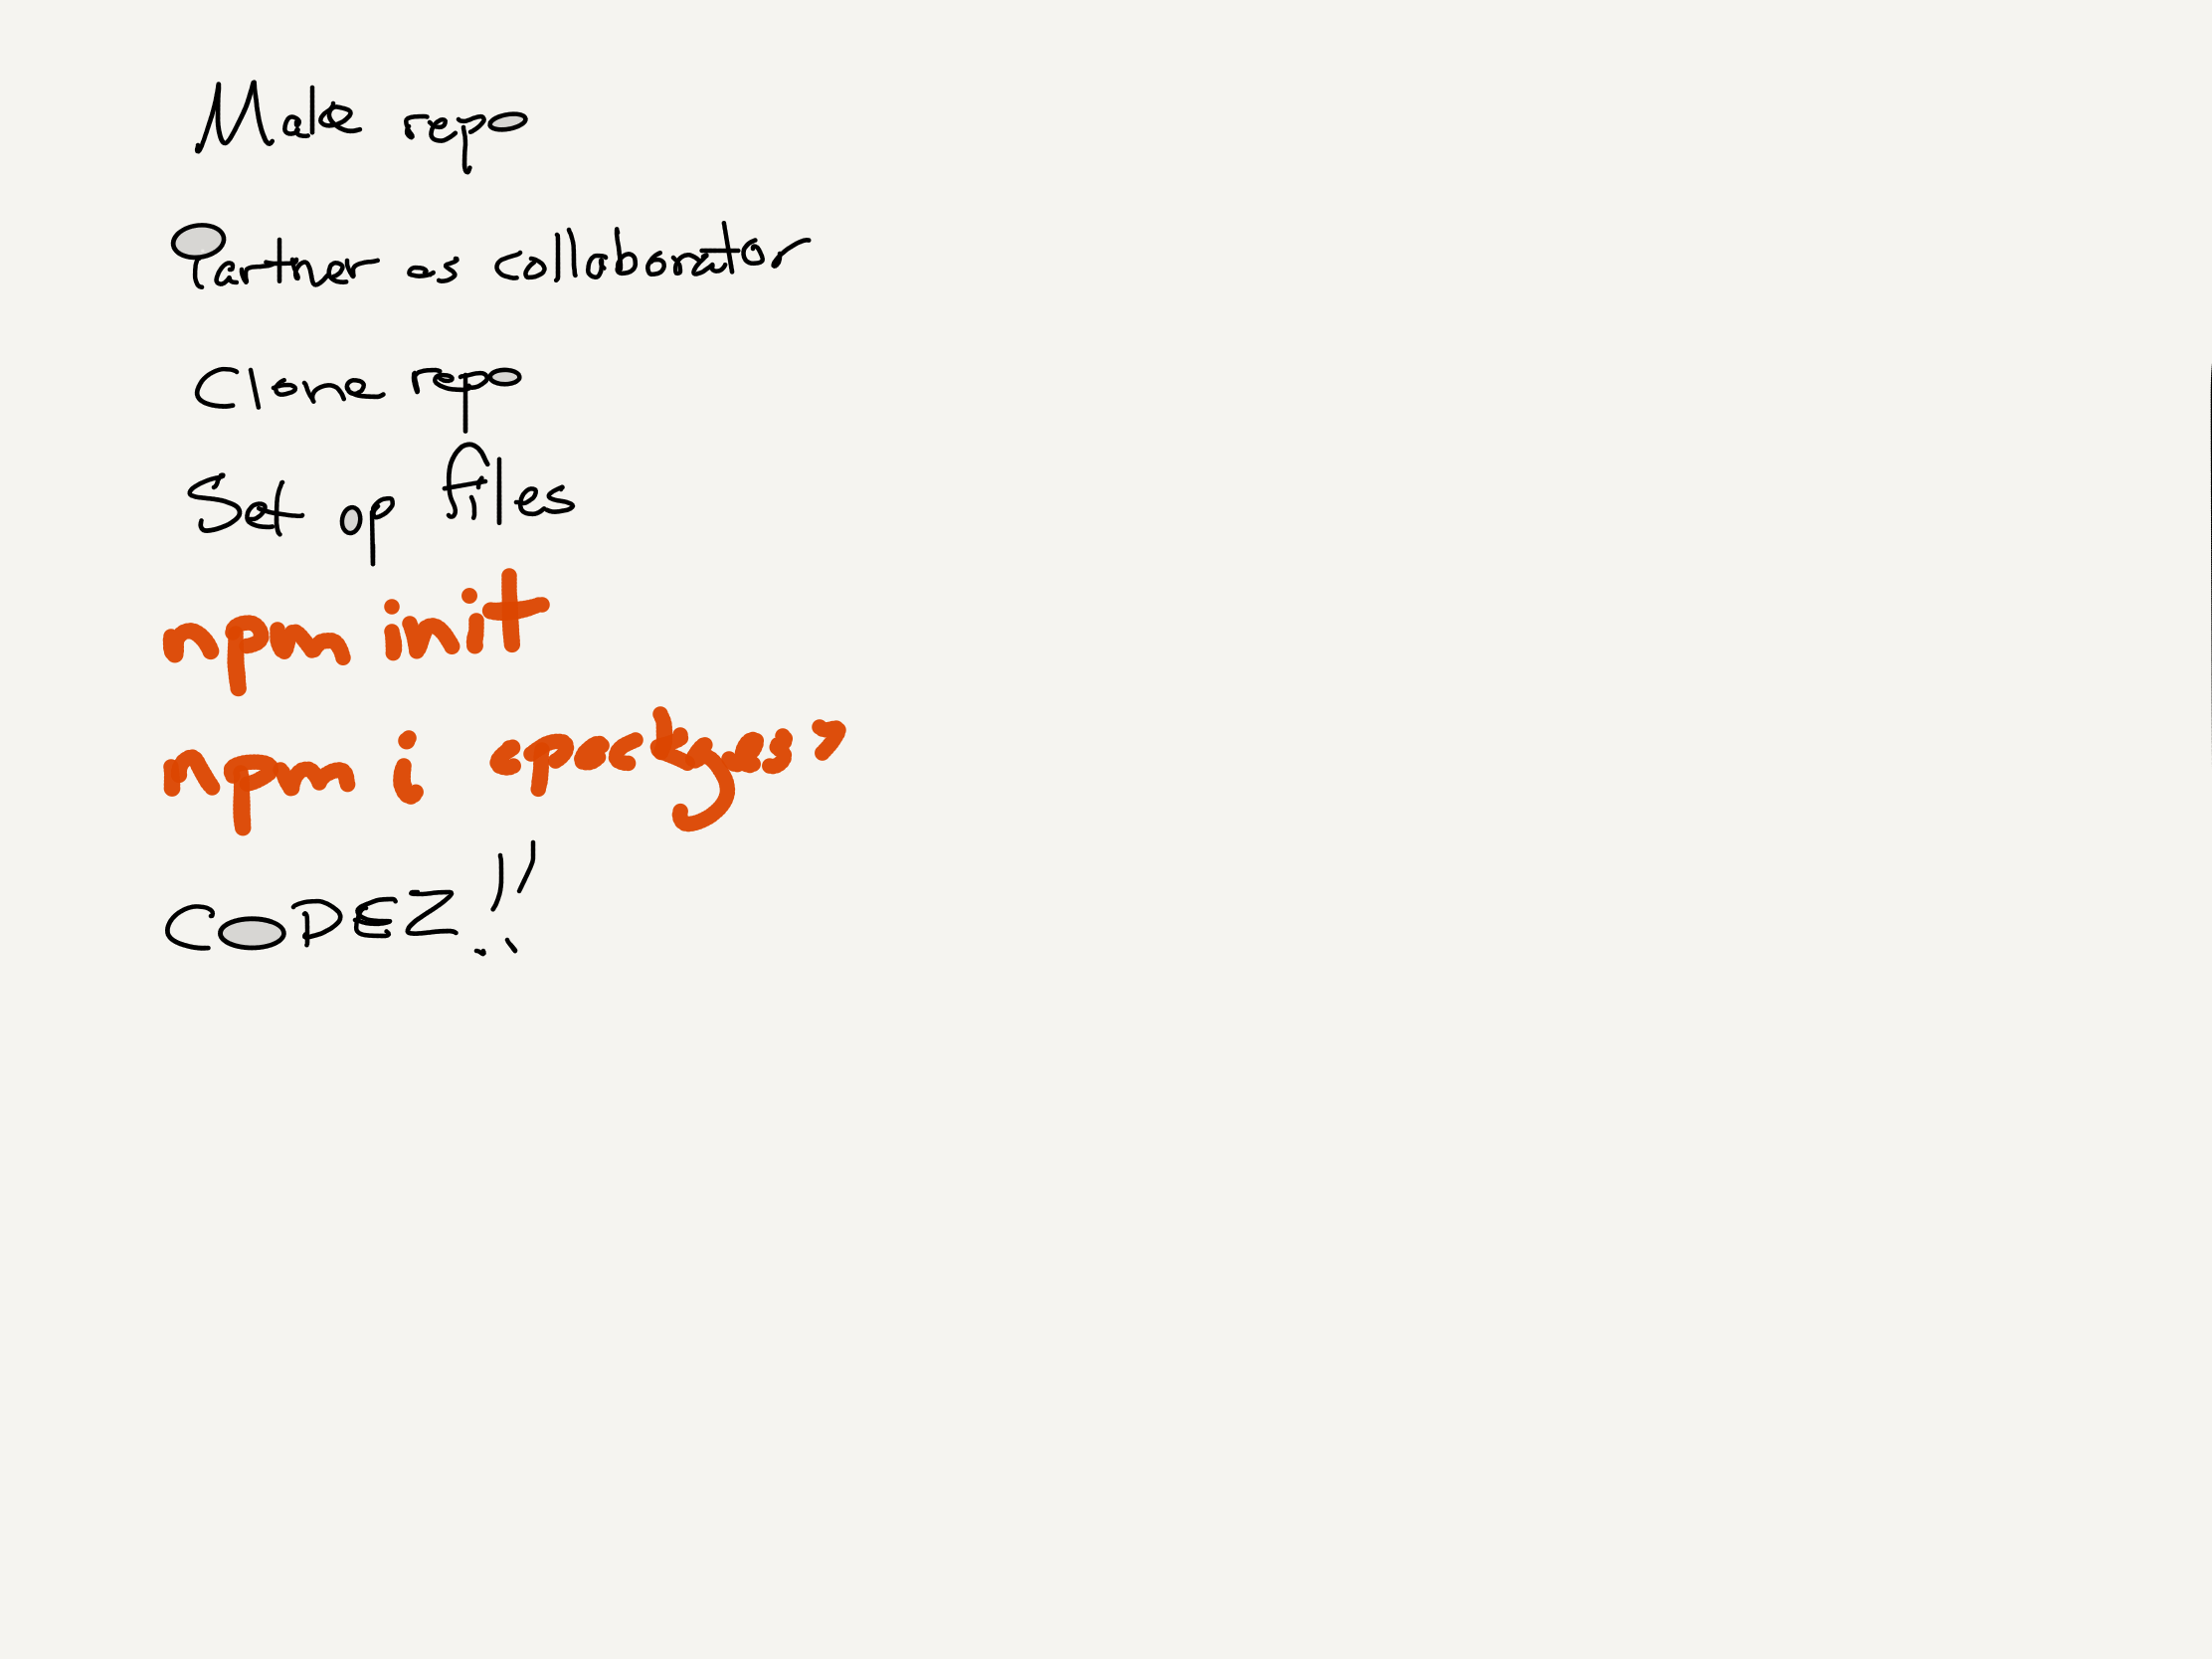 Make repo
Partner as collaborator
Clone repo
Set up files
npm init
npm i <packages>
CODEZ!!